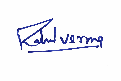 Rahul verma